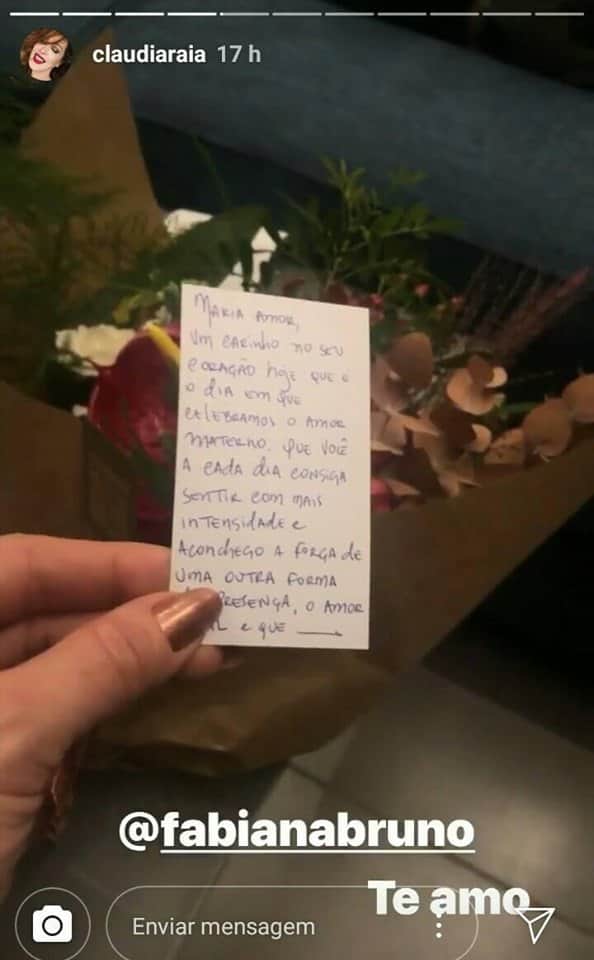 claudiaraia 17 h
MARIA AMOR,
UM CARINHO NO SEU
CORAÇÃO HOJE QUE É
O DIA EM QUE
CELEBRAMOS O AMOR
MATERNO. QUE VOCÊ
A CADA DIA CONSIGA
SENTIR COM MAIS
INTENSIDADE E
ACONCHEGO A FORÇA DE
UMA OUTRA FORMA
PRESENÇA, O AMOR
E QUE
@fabianabruno
Te amo
Enviar mensagem